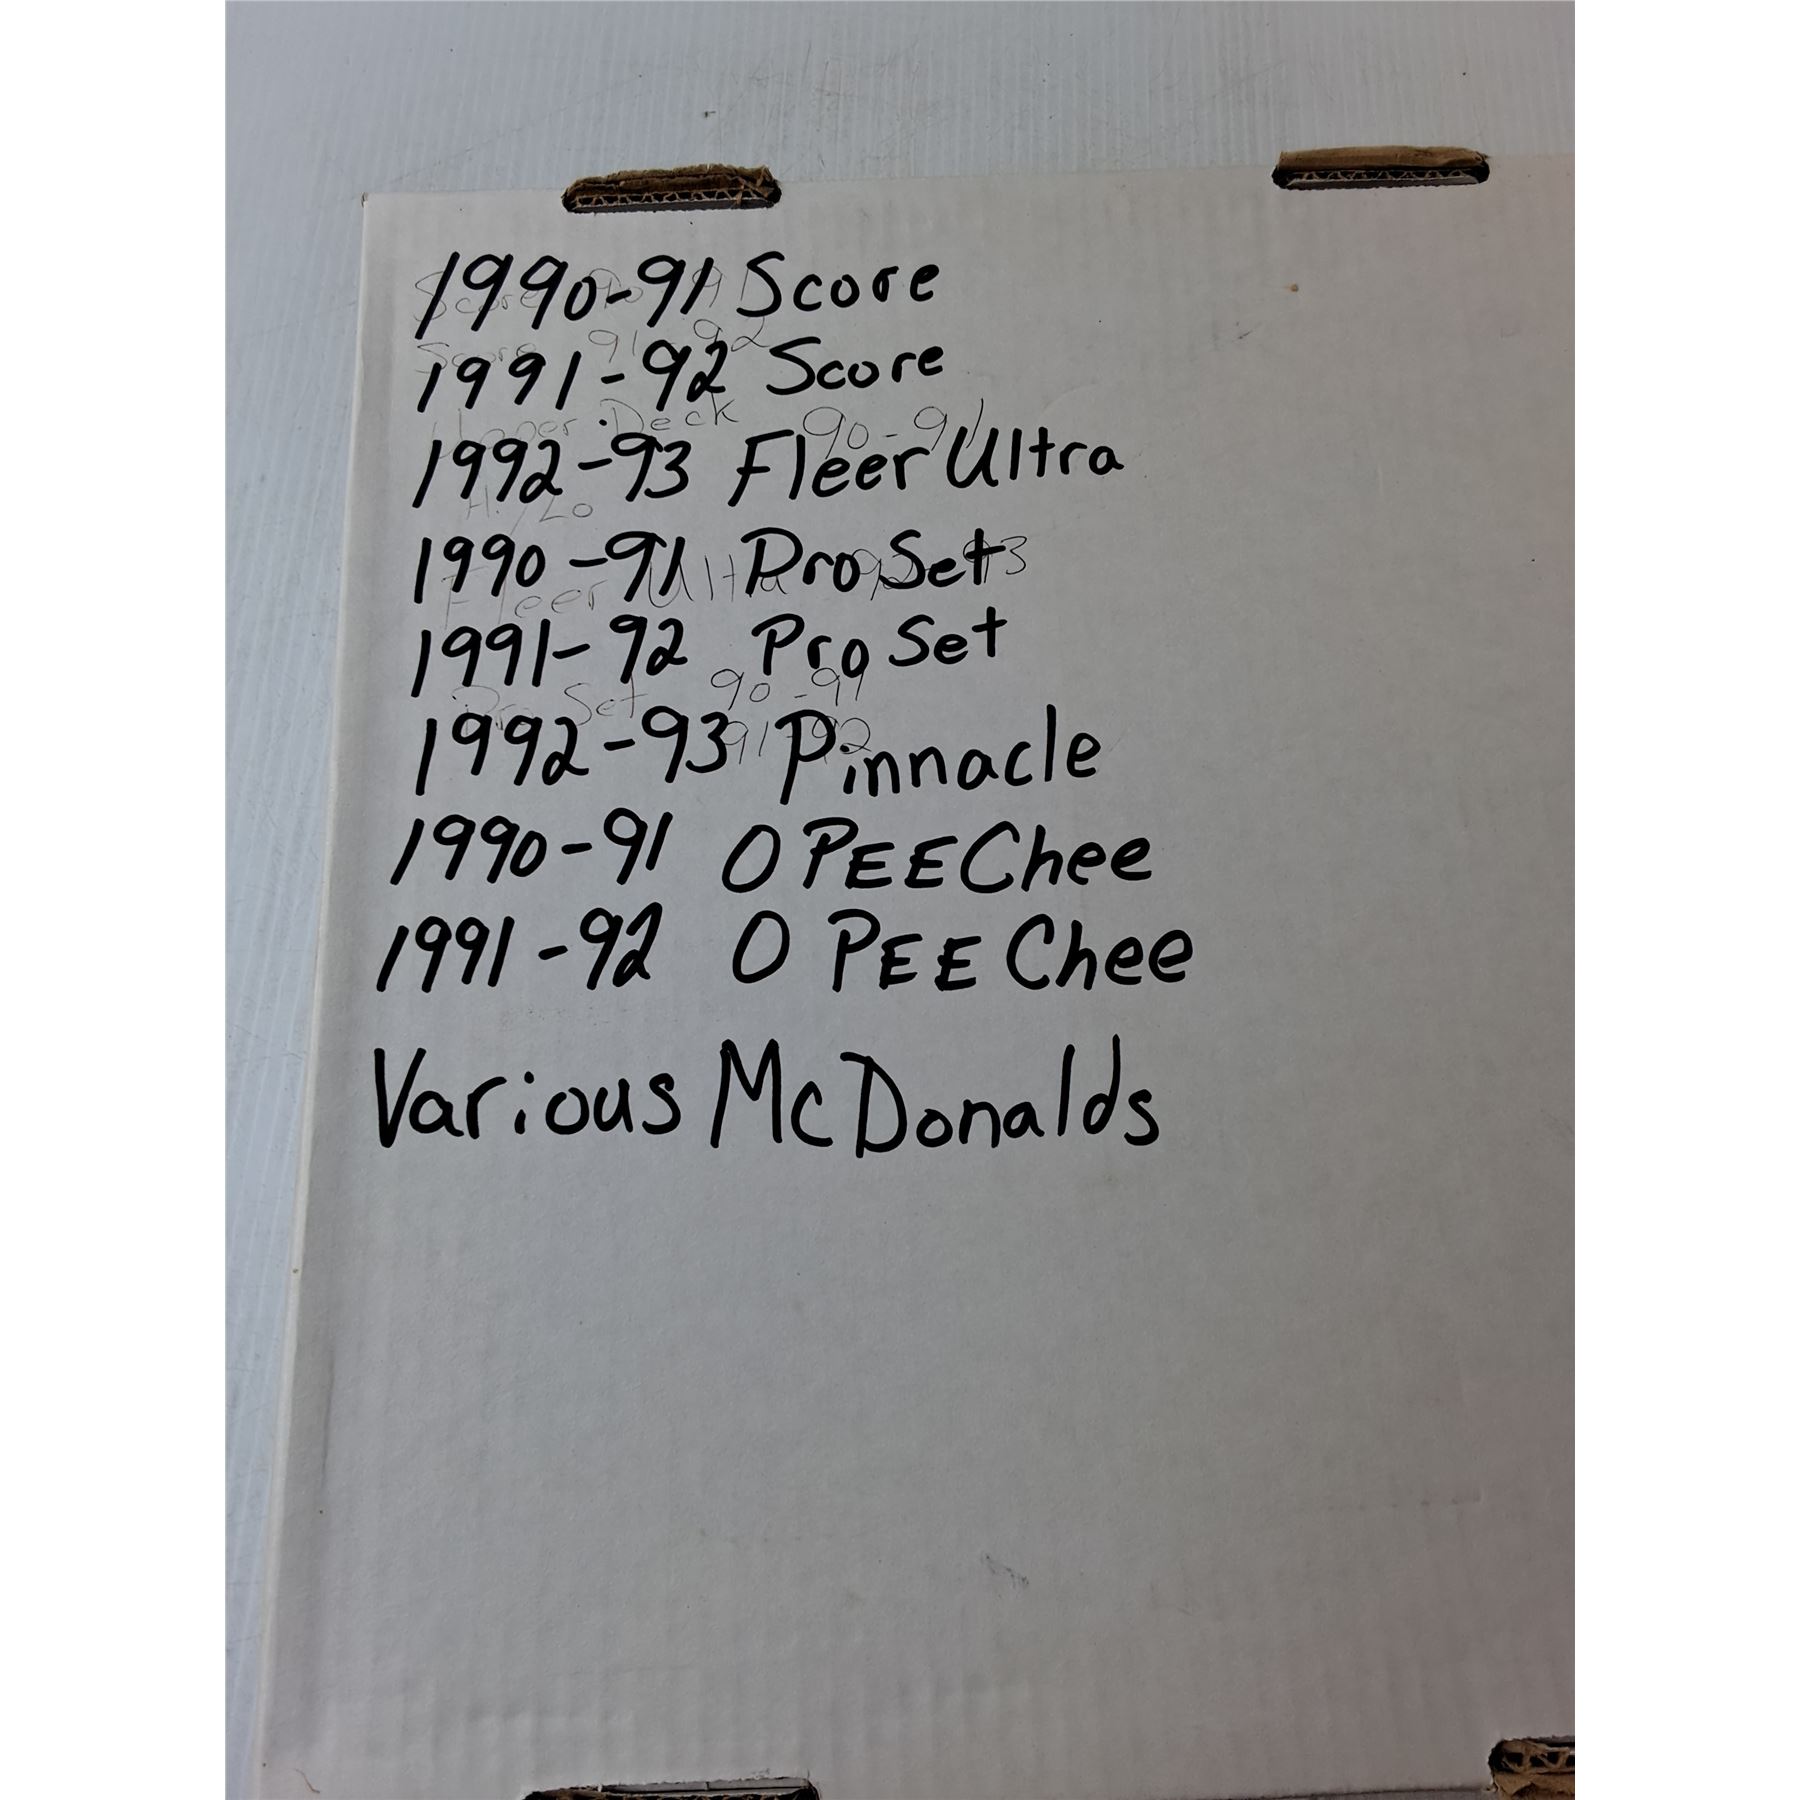 1990-91 Score
Score 90-91
Score 91-92
1991-92 Score
Upper Deck 90-91
1992-93 Fleer Ultra
Hi/Lo
1990-91 Pro Set
Fleer Ultra 92-93
1991-92 Pro Set
Pro Set 90-91
91-92
1992-93 Pinnacle
1990-91 O PEE Chee
1991-92 O PEE Chee
Various McDonalds